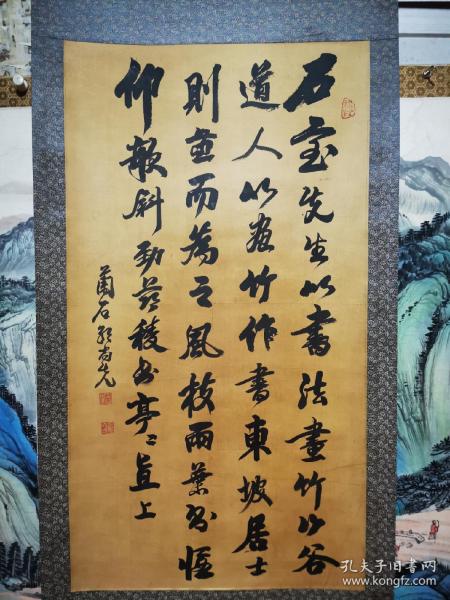 石室先生以書法畫竹山谷
道人以畫竹作書東坡居士
則兼而為之風枝雨葉偃
仰欹斜勁稜亭〻直上
蘭石郭尚先
孔夫子旧书网
www.kongfz.com